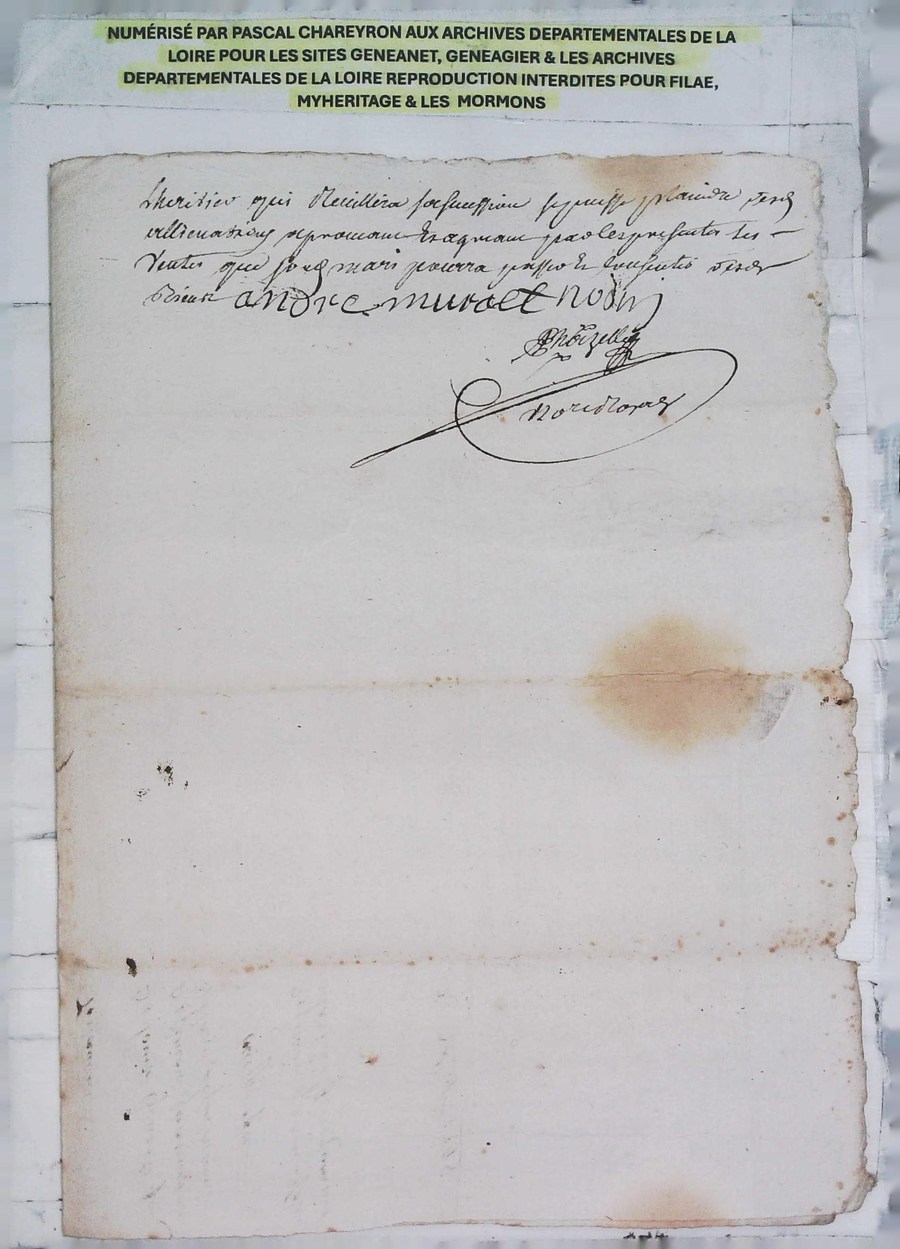 NUMÉRISÉ PAR PASCAL CHAREYRON AUX ARCHIVES DEPARTEMENTALES DE LA
LOIRE POUR LES SITES GENEANET, GENEAGIER & LES ARCHIVES
DEPARTEMENTALES DE LA LOIRE REPRODUCTION INTERDITES POUR FILAE,
MYHERITAGE & LES MORMONS
Lheritier qui Recuillira sa sucession se puisse plaindre desd
allienations aprouvant Et agreant par les presentes les
Ventes que sond mari pourra passer Et Consentir desd
Biens andre muraet